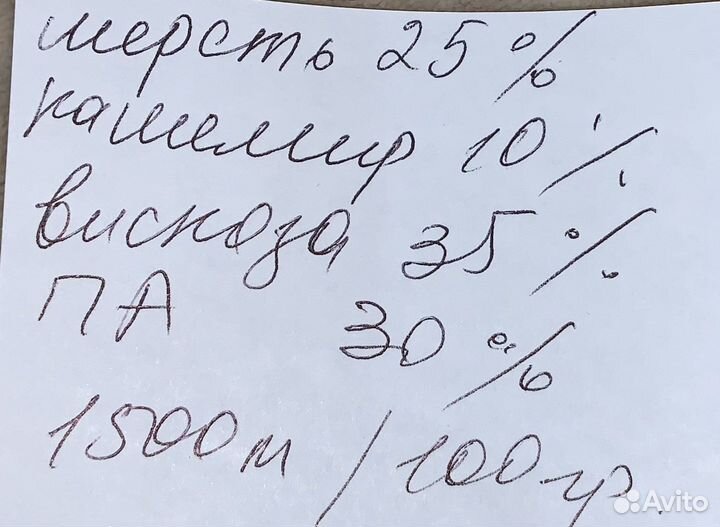 шерсть 25%
кашемир 10%
вискоза 35%
ПА 30%
1500м/100гр.
Avito